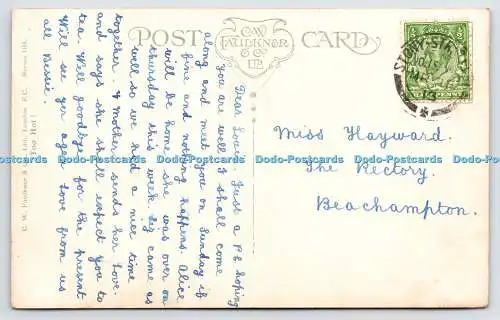 POST CARD
C.W.
FAULKNER
& Co
LTD.
Dear Louie, Just a P.C hoping
you are well. I shall come
along and meet you on Sunday if
fine and nothing happens. Alice
will be home, she was over on
thursday this week. Reg came as
well so we had a nice time
together. Mother sends her love.
and says she shall expect you to
tea. Well goodbye for the present
Will see you again. Love from us
all Bessie.
Miss Hayward.
The Rectory.
Beachampton.
C. W. Faulkner & Co., Ltd., London E.C.
Too Hot!
Dodo-Postcards Dodo-Postcards Dodo-Postcards Dodo-Postcards Dodo-Postcards Dodo-Postcards